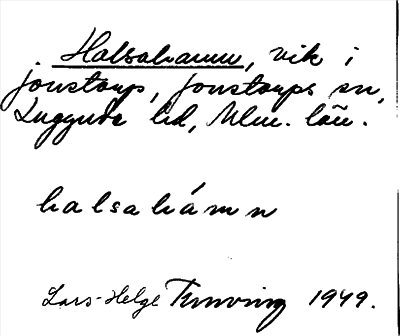 Halsahamn, vik i
Jonstorp, Jonstorps sn,
Luggude hd, Mlm. län.
halsahámn
Lars-Helge 1949.